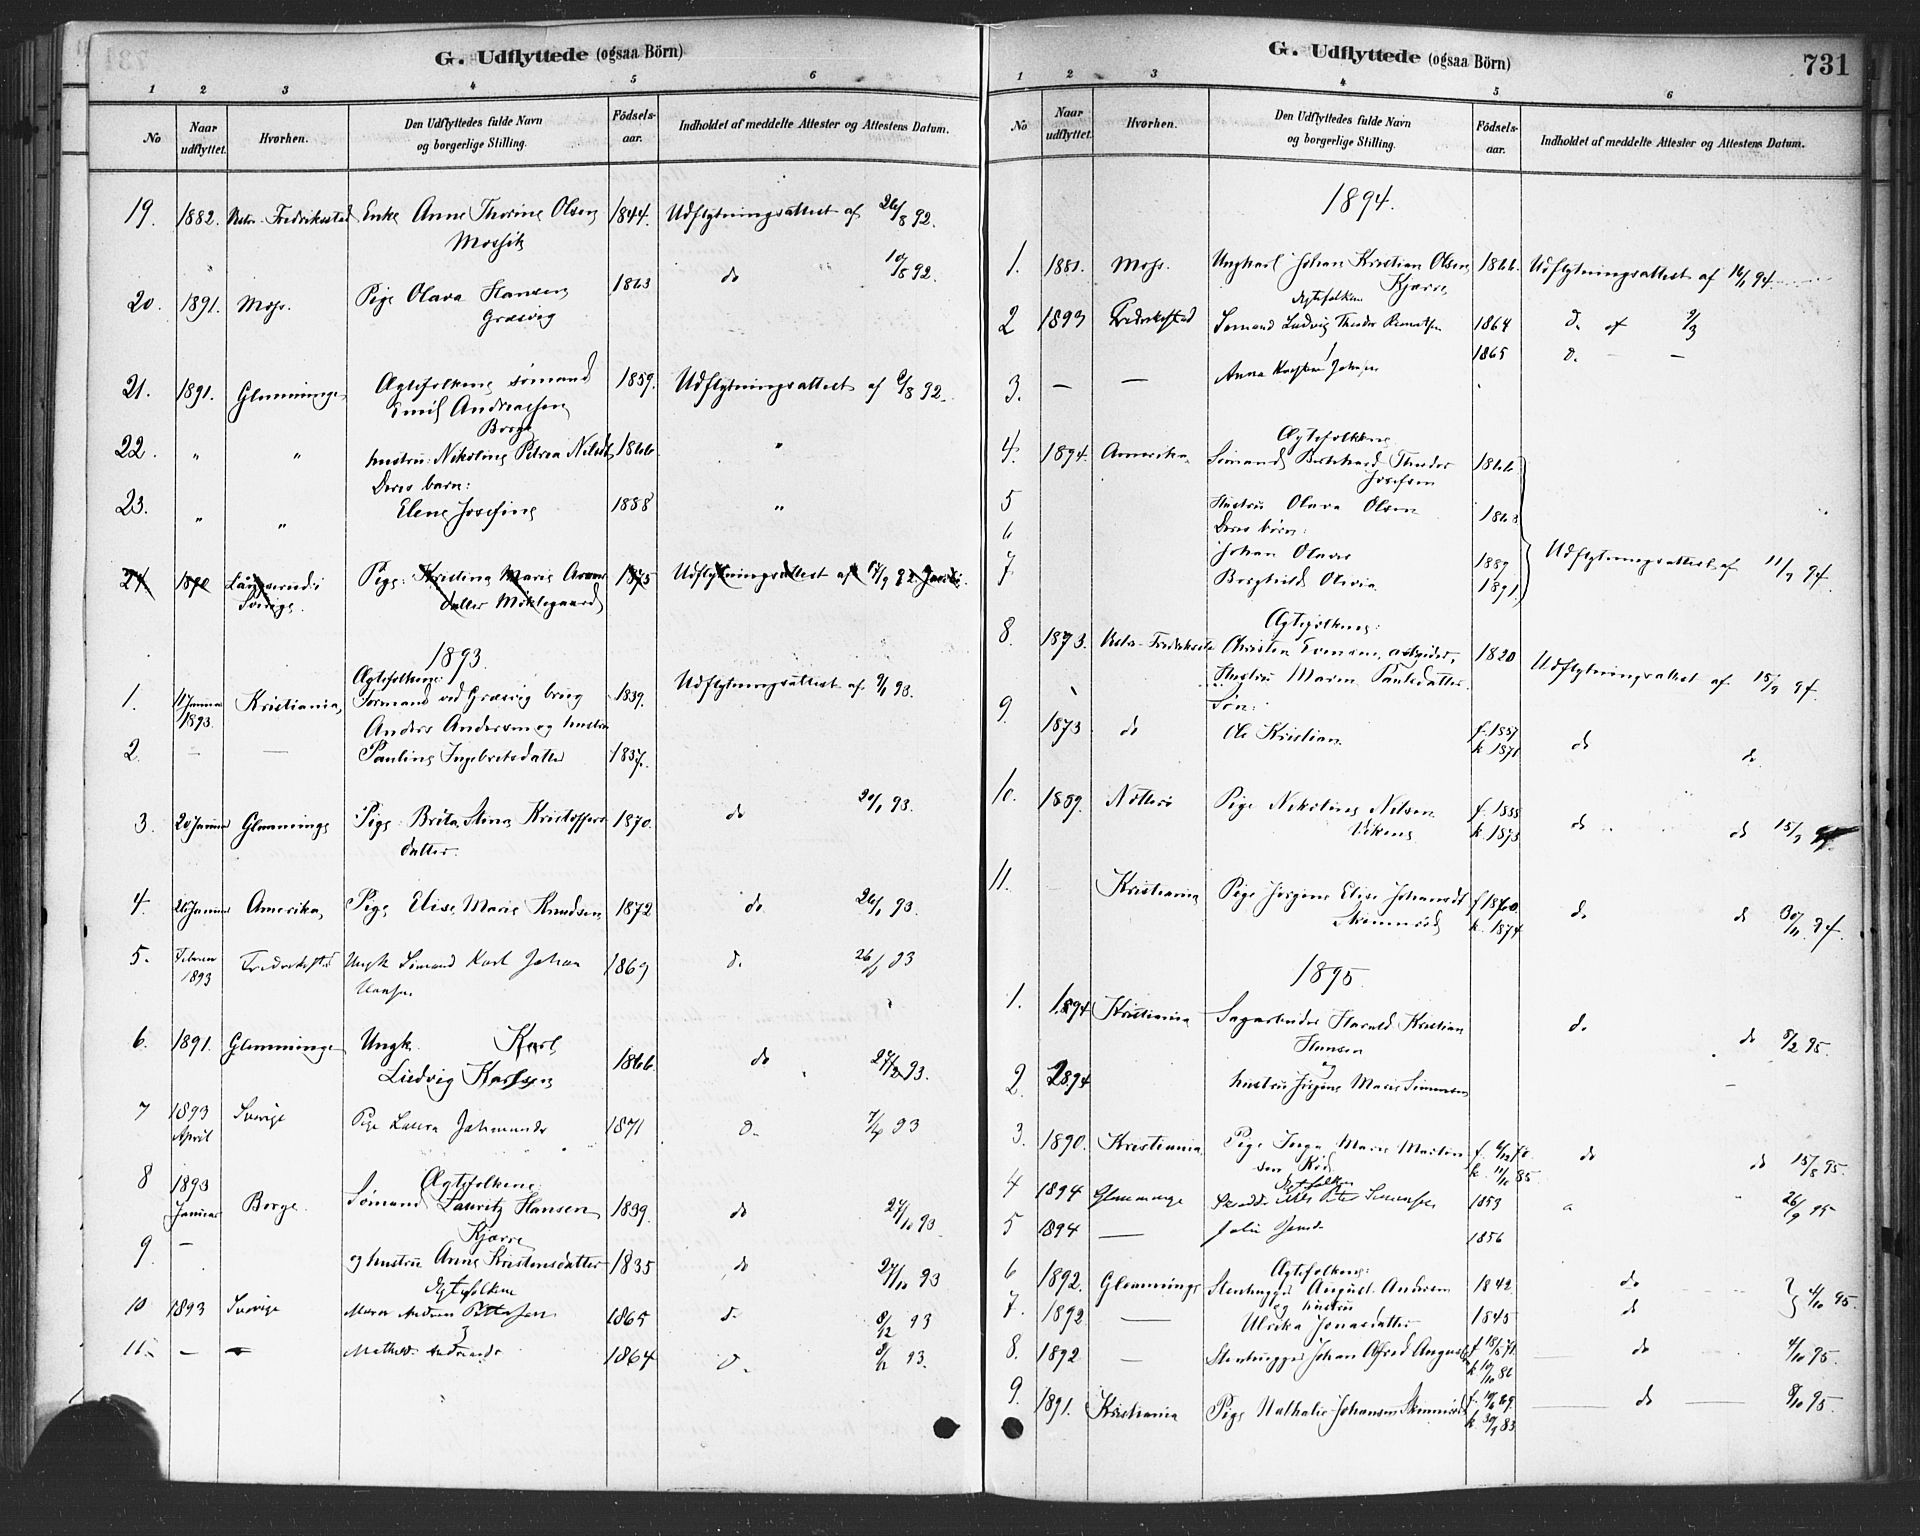 G. Udflyttede (ogsaa Börn)
1 2 3 4 5 6
No
Naar udflyttet.
Hvorhen.
Den Udflyttedes fulde Navn og borgerlige Stilling.
Födsels-aar.
Indholdet af meddelte Attester og Attestens Datum.
19. 1882. Fredriksstad Enke Anne Thorine Olsen 1844. Udflytningsattest af 26/8 92.
20. 1891. Moss. Pige Olava Hansen 1863 do 10/8 92.
Græsvig
21. 1891. Glemminge Ægtefolkene, sømand 1859. Udflytningsattest af 6/8 92.
Emil Andreassen
Borge
22. " " hustru: Nikoline Petrea Nilsdt 1866 "
Deres barn:
23. " " Elene Josefine 1888 "
24. Pige: Kristina Marie 1875 Udflytningsattest af
datter
1893.
Ægtefolkene:
1. 17 Januar 1893. Kristiania, Formand ved Græsvig brug 1839. Udflytningsattest af 9/1 93.
Anders Andersen og hustru
2. — — Pauline Ingebretsdatter 1837.
3. 20 Januar Glemminge Pige: Brita Stina Kristoffers 1870. do 20/1 93.
datter.
4. 26 Januar Amerika, Pige Elise Marie Knudsen 1872 do 26/1 93.
5. Februar 1893 Fredrikstad Ungk Sømand Karl Johan 1869 d. 26/1 93
Hansen
6. 1891. Glemminge Ungk. Karl
Ludvig Karlsen 1866. do 27/2 93.
7 1893 April Sverige Pige Laura 1871 d. 7/4 93
8 1893 Januar Borge. Ægtefolkene:
Sømand Lauritz Hansen 1839. do 27/10 93.
Kjærre
9. — og hustru Anne Kristensdatter 1835 do 27/10 93
Ægtefolkene
10 1893 Sverige Andreas Pettersen 1865 d. 8/12 93
11. — — 1864 d. 8/12 93.
G. Udflyttede (ogsaa Börn)
731
1 2 3 4 5 6
No
Naar udflyttet.
Hvorhen.
Den Udflyttedes fulde Navn og borgerlige Stilling.
Födsels-aar.
Indholdet af meddelte Attester og Attestens Datum.
1894.
1. 1881. Moss. Ungkarl Johan Kristian Olsen 1866. Udflytningsattest af 16/1 94.
Kjærre
Ægtefolkene
2 1893 Fredrikstad Sømand Ludvig Theodor 1864 d. af 9/3
3. — — Anna 1865 d. — —
Ægtefolkene
4. 1894. Amerika. Sømand Theodor 1866
Josefsen
5 Hustru Olava Olsen 1863
6 Deres børn:
Johan Olaves 1889
7 Borghild Olivia 1891. Udflytningsattest af 11/9 94.
Ægtefolkene:
8. 1873. Fredrikstad Christen arbeider, 1820 Udflytningsattest af 15/9 94.
Hustru Maren Paulsdatter.
Søn:
9. 1873 do Ole Kristian. f. 1857 k. 1871 do do.
10. 1889. Nøtterø Pige Nikoline Nilsen f. 1858 k. 1873 do do 15/9 94.
Vikene
11. Kristiania Pige Jørgine Elise Johansdt f 1860. k. 1874 do do 30/11 94.
1895.
1. 1894 Kristiania Sagarbeider Harald Kristian do do 8/2 95.
Hansen
og
2. 1894 hustru Jørgine Marie Simensen —
3. 1890. Kristiania Pige Inga Marie Martin f. 6/12 70. k. 11/10 85. do do 15/8 95.
Ægtefolkene
4 1894 Glemminge Peter 1859 26/9 95
5 1894 — 1856
Ægtefolkene:
6 1892. Glemminge Stenhugger August Andersen 1842. do 4/10 95.
og hustru
7. 1892 — Ulrika Jonasdatter 1845 do
8. 1892 — Stenhugger Johan Alfred August f 18/5 71. k 10/10 86 do 4/10 95.
9. 1891. Kristiania Pige Nathalie Johansen f. k. 30/9 83. do 8/10 95.